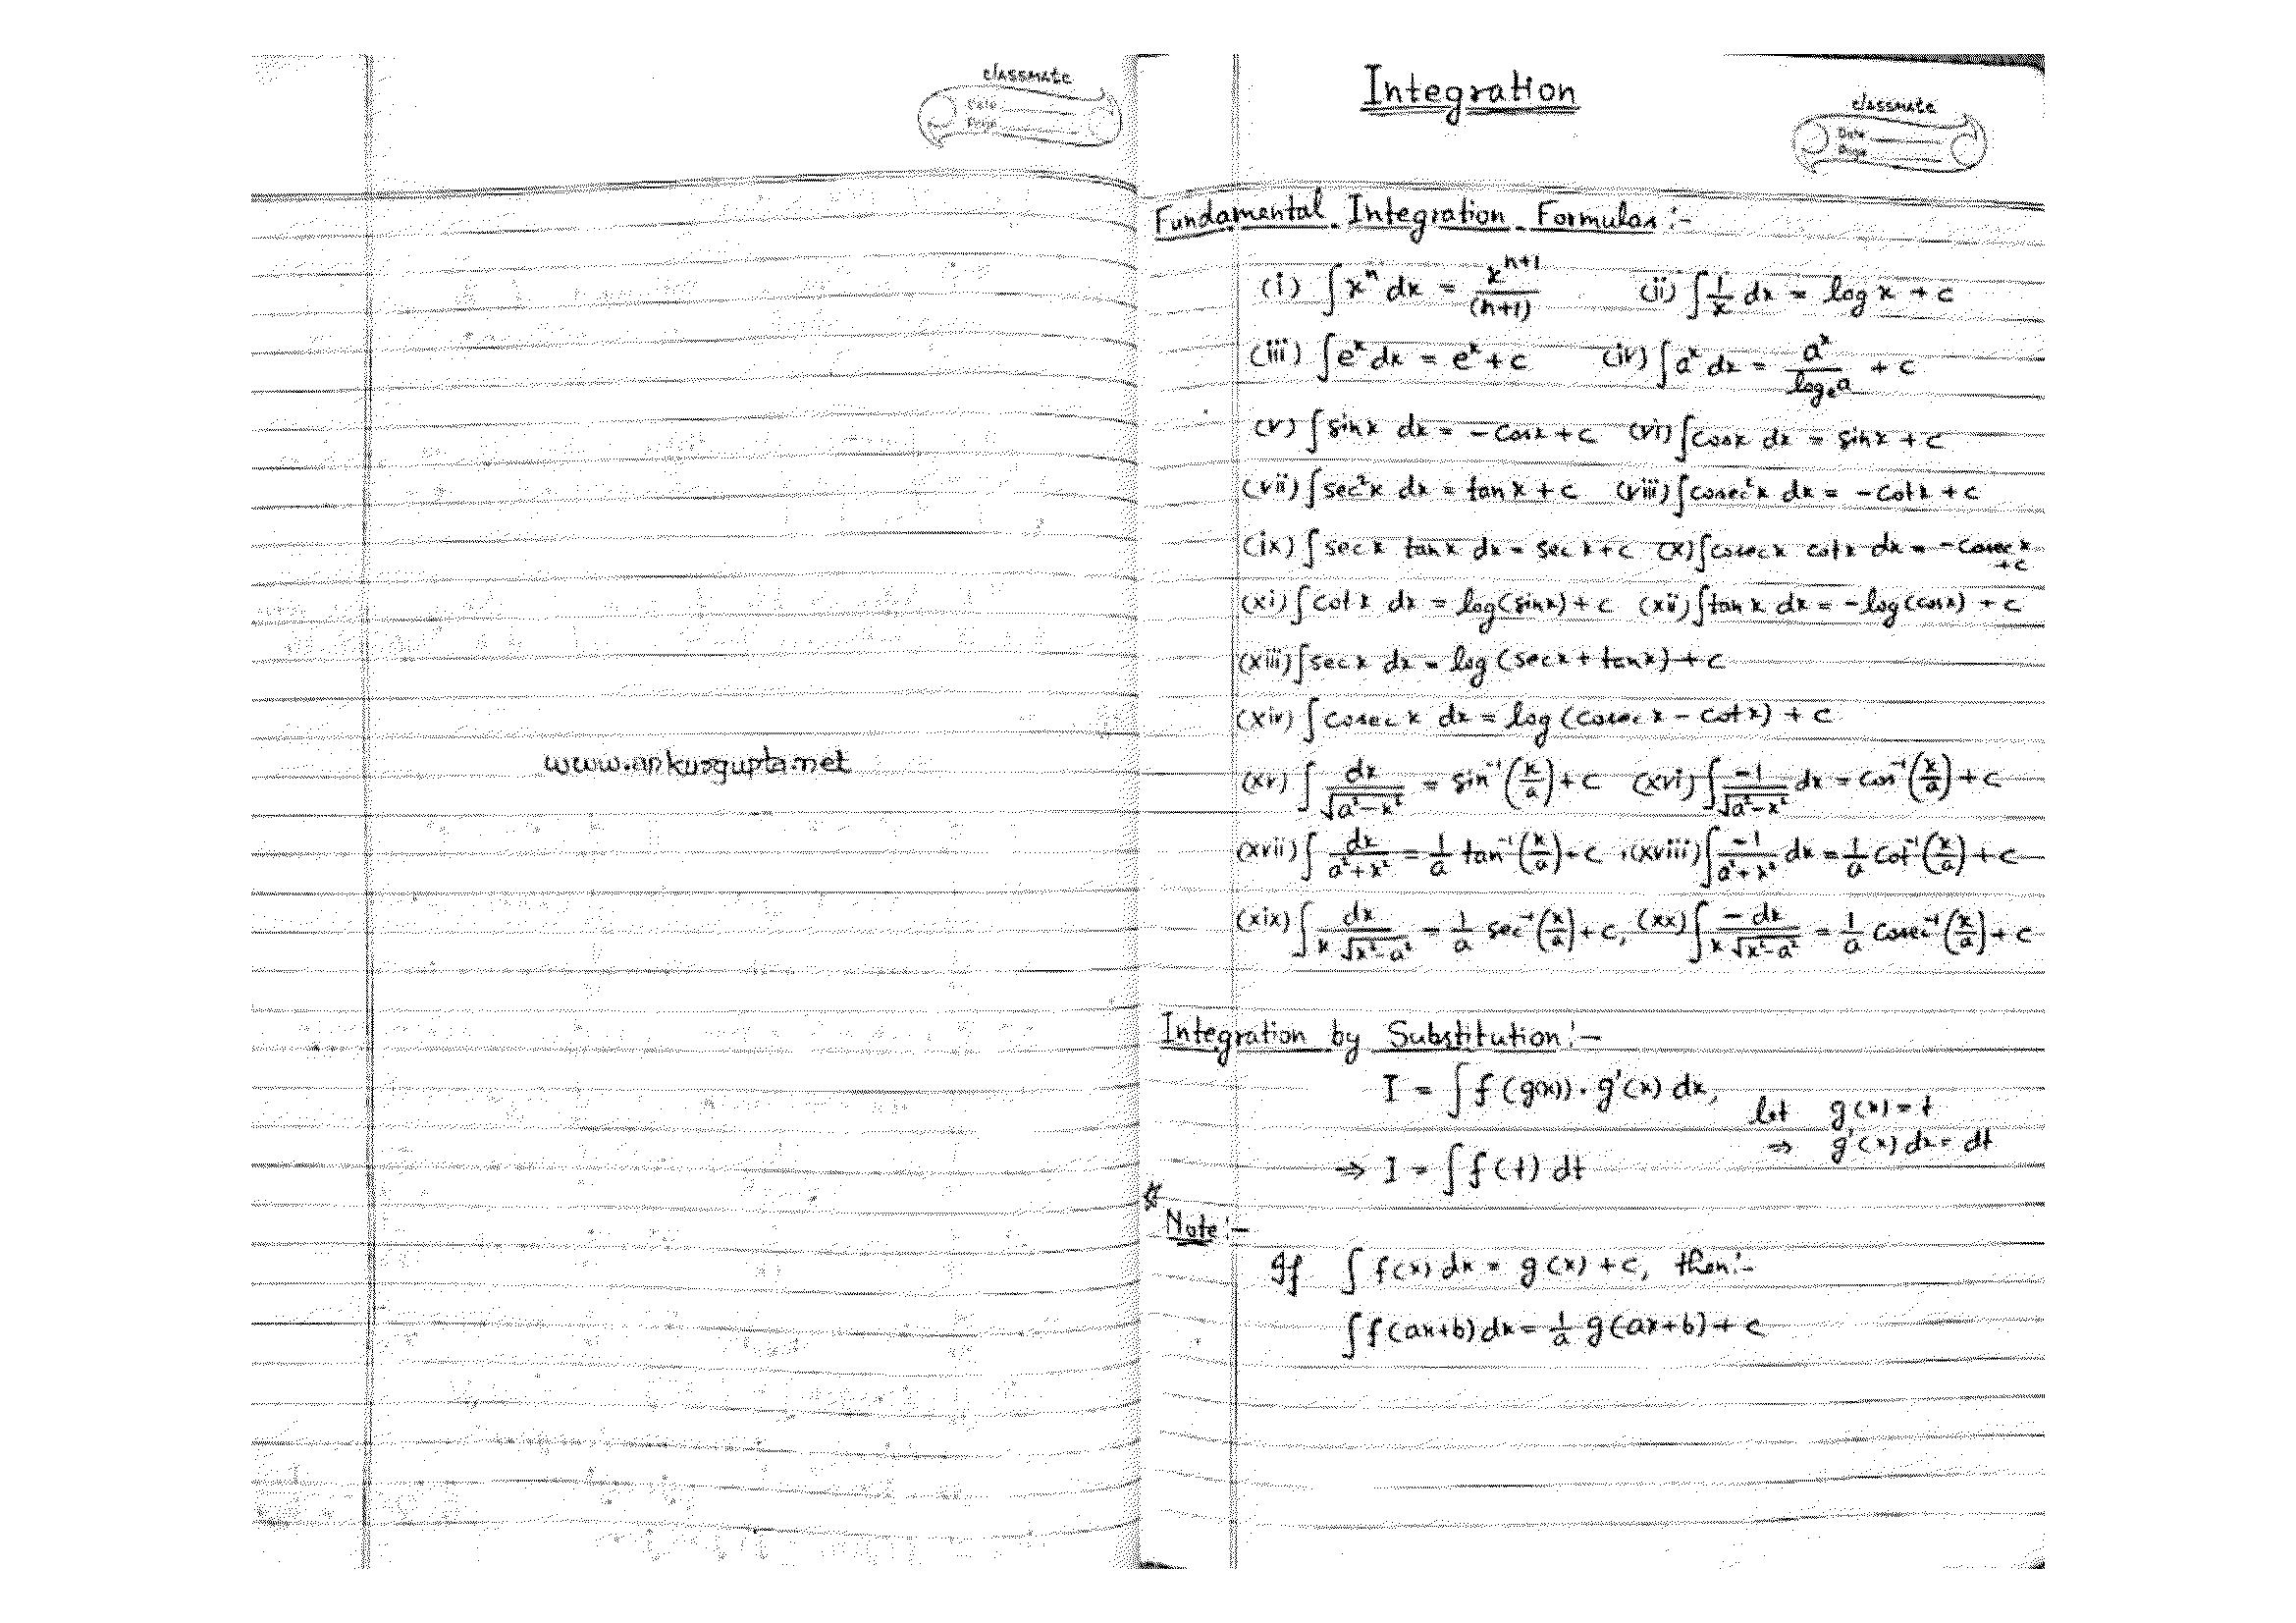 classmate
Date
Page
www.ankurgupta.net
Integration
classmate
Date
Page
Fundamental Integration Formulas :-
(i) ∫ xⁿ dx = xⁿ⁺¹/(n+1) (ii) ∫ 1/x dx = log x + c
(iii) ∫ eˣ dx = eˣ + c (iv) ∫ aˣ dx = aˣ/logₑa + c
(v) ∫ sinx dx = -cosx + c (vi) ∫ cosx dx = sinx + c
(vii) ∫ sec²x dx = tanx + c (viii) ∫ cosec²x dx = -cotx + c
(ix) ∫ secx tanx dx = secx + c (x) ∫ cosecx cotx dx = -cosecx + c
(xi) ∫ cotx dx = log(sinx) + c (xii) ∫ tanx dx = -log(cosx) + c
(xiii) ∫ secx dx = log (secx + tanx) + c
(xiv) ∫ cosecx dx = log (cosecx - cotx) + c
(xv) ∫ dx/√(a²-x²) = sin⁻¹(x/a) + c (xvi) ∫ -1/√(a²-x²) dx = cos⁻¹(x/a) + c
(xvii) ∫ dx/(a²+x²) = 1/a tan⁻¹(x/a) + c, (xviii) ∫ -1/(a²+x²) dx = 1/a cot⁻¹(x/a) + c
(xix) ∫ dx/(x√(x²-a²)) = 1/a sec⁻¹(x/a) + c, (xx) ∫ -dx/(x√(x²-a²)) = 1/a cosec⁻¹(x/a) + c
Integration by Substitution :-
I = ∫ f(g(x)) · g'(x) dx,
let g(x) = t
⇒ g'(x) dx = dt
⇒ I = ∫ f(t) dt
* Note :-
If ∫ f(x) dx = g(x) + c, then :-
∫ f(ax+b) dx = 1/a g(ax+b) + c